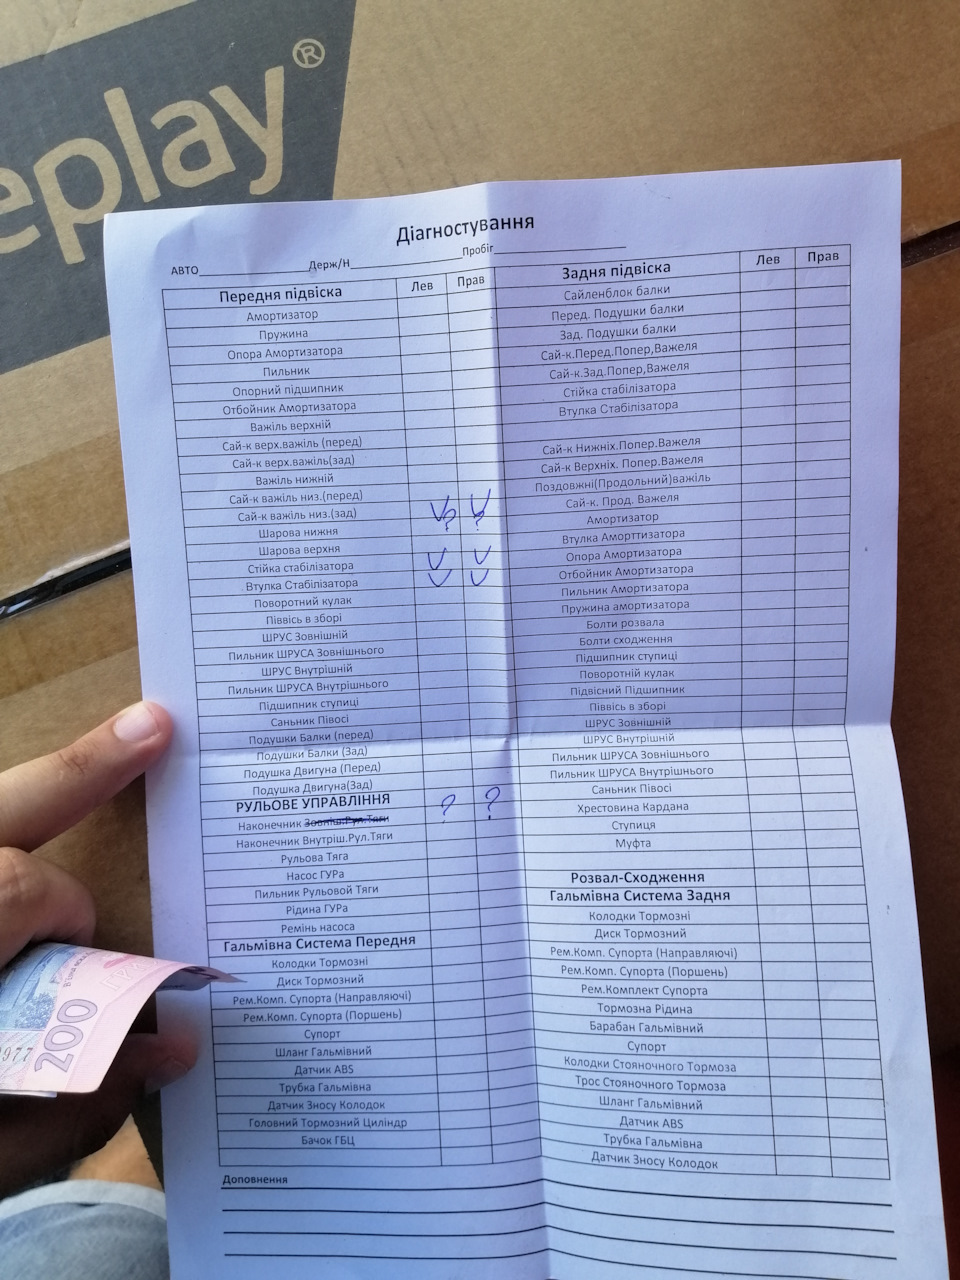 eplay®
Діагностування
АВТО Держ/Н Пробіг
Передня підвіска Лев Прав
Амортизатор
Пружина
Опора Амортизатора
Пильник
Опорний підшипник
Отбойник Амортизатора
Важіль верхній
Сай-к верх.важіль (перед)
Сай-к верх.важіль(зад)
Важіль нижній
Сай-к важіль низ.(перед)
Сай-к важіль низ.(зад) V V
Шарова нижня ? ?
Шарова верхня
Стійка стабілізатора V V
Втулка Стабілізатора V V
Поворотний кулак
Піввісь в зборі
ШРУС Зовнішній
Пильник ШРУСА Зовнішнього
ШРУС Внутрішній
Пильник ШРУСА Внутрішнього
Підшипник ступиці
Саньник Півосі
Подушки Балки (перед)
Подушки Балки (Зад)
Подушка Двигуна (Перед)
Подушка Двигуна(Зад)
РУЛЬОВЕ УПРАВЛІННЯ
Наконечник Зовніш.Рул.Тяги ? ?
Наконечник Внутріш.Рул.Тяги
Рульова Тяга
Насос ГУРа
Пильник Рульовой Тяги
Рідина ГУРа
Ремінь насоса
Гальмівна Система Передня
Колодки Тормозні
Диск Тормозний
Рем.Комп. Супорта (Направляючі)
Рем.Комп. Супорта (Поршень)
Супорт
Шланг Гальмівний
Датчик ABS
Трубка Гальмівна
Датчик Зносу Колодок
Головний Тормозний Циліндр
Бачок ГБЦ
Задня підвіска Лев Прав
Сайленблок балки
Перед. Подушки балки
Зад. Подушки балки
Сай-к.Перед.Попер,Важеля
Сай-к.Зад.Попер,Важеля
Стійка стабілізатора
Втулка Стабілізатора
Сай-к Нижніх.Попер.Важеля
Сай-к Верхніх. Попер.Важеля
Поздовжні(Продольний)важіль
Сай-к. Прод. Важеля
Амортизатор
Втулка Аморттизатора
Опора Амортизатора
Отбойник Амортизатора
Пильник Амортизатора
Пружина амортизатора
Болти розвала
Болти сходження
Підшипник ступиці
Поворотній кулак
Підвісний Підшипник
Піввісь в зборі
ШРУС Зовнішній
ШРУС Внутрішній
Пильник ШРУСА Зовнішнього
Пильник ШРУСА Внутрішнього
Саньник Півосі
Хрестовина Кардана
Ступиця
Муфта
Розвал-Сходження
Гальмівна Система Задня
Колодки Тормозні
Диск Тормозний
Рем.Комп. Супорта (Направляючі)
Рем.Комп. Супорта (Поршень)
Рем.Комплект Супорта
Тормозна Рідина
Барабан Гальмівний
Супорт
Колодки Стояночного Тормоза
Трос Стояночного Тормоза
Шланг Гальмівний
Датчик ABS
Трубка Гальмівна
Датчик Зносу Колодок
Доповнення
200